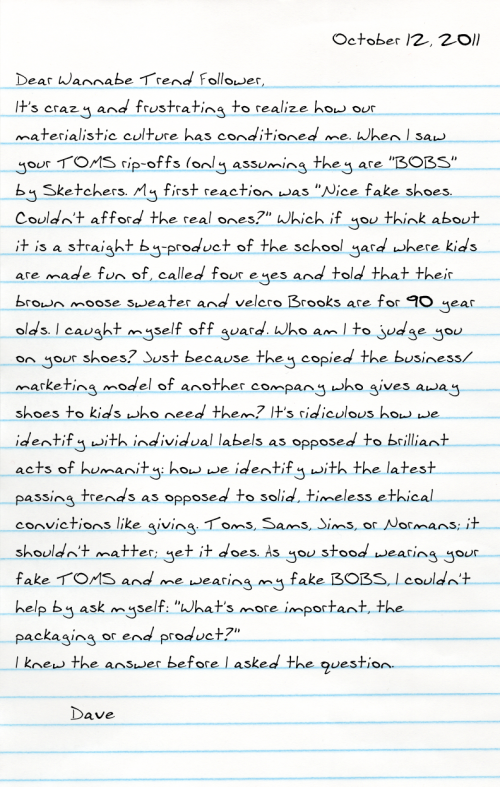 October 12, 2011
Dear Wannabe Trend Follower,
It's crazy and frustrating to realize how our
materialistic culture has conditioned me. When I saw
your TOMS rip-offs (only assuming they are "BOBS"
by Sketchers. My first reaction was "Nice fake shoes.
Couldn't afford the real ones?" Which if you think about
it is a straight by-product of the school yard where kids
are made fun of, called four eyes and told that their
brown moose sweater and velcro Brooks are for 90 year
olds. I caught myself off guard. Who am I to judge you
on your shoes? Just because they copied the business/
marketing model of another company who gives away
shoes to kids who need them? It's ridiculous how we
identify with individual labels as opposed to brilliant
acts of humanity; how we identify with the latest
passing trends as opposed to solid, timeless ethical
convictions like giving. Toms, Sams, Jims, or Normans; it
shouldn't matter; yet it does. As you stood wearing your
fake TOMS and me wearing my fake BOBS, I couldn't
help by ask myself: "What's more important, the
packaging or end product?"
I knew the answer before I asked the question.
Dave